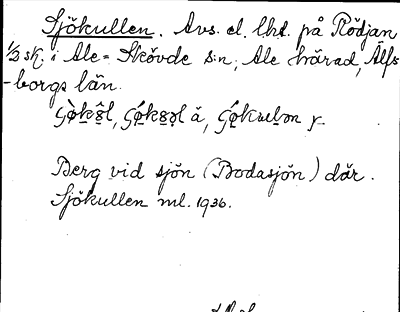 Sjökullen. Avs. el. lht. på Rödjan
1/2 sk. i Ale-Skövde s:n, Ale härad, Älfs
-borgs län.
Berg vid sjön (Bodasjön) där.
Sjökullen ml. 1936.